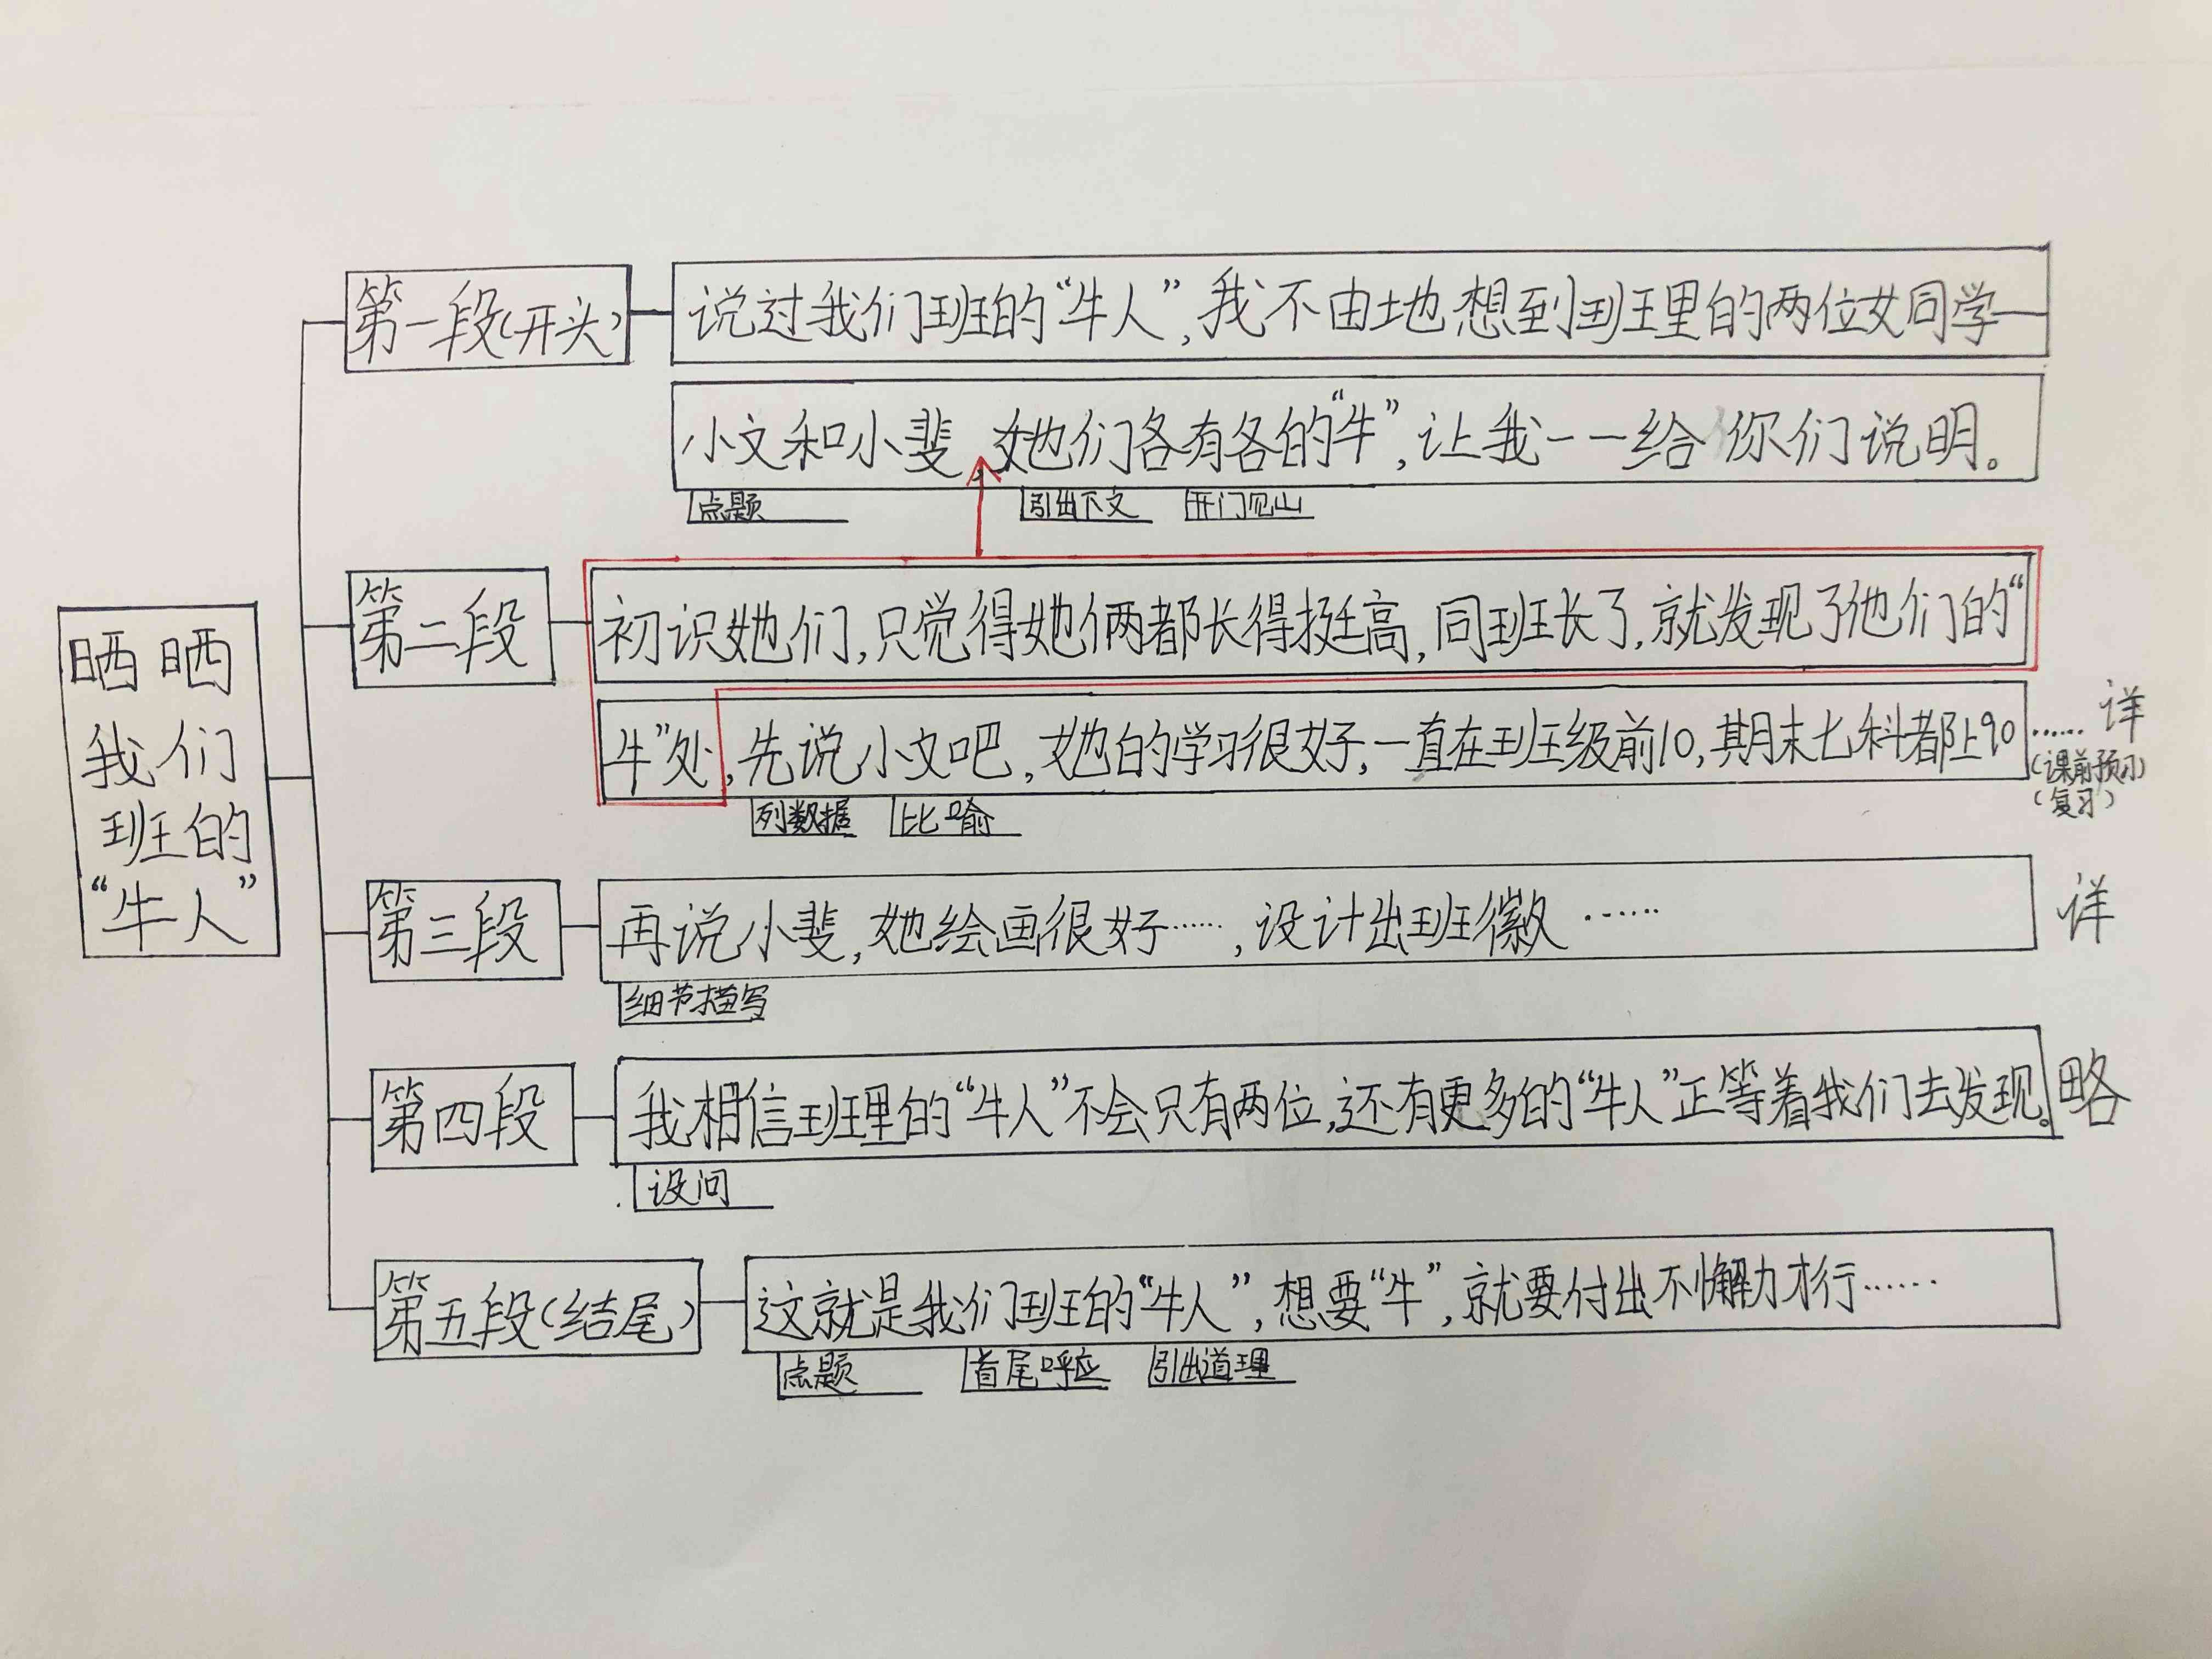 晒晒
我们
班的
“牛人”
第一段(开头)
说过我们班的“牛人”,我不由地想到班里的两位女同学—
小文和小斐,她们各有各的“牛”,让我一一给你们说明。
点题
引出下文
开门见山
第二段
初识她们,只觉得她俩都长得挺高,同班长了,就发现了他们的“
牛”处,先说小文吧,她的学习很好,一直在班级前10,期末七科都上90
…… 详
(课前预习)
(复习)
列数据
比喻
第三段
再说小斐,她绘画很好……,设计出班徽……
详
细节描写
第四段
我相信班里的“牛人”不会只有两位,还有更多的“牛人”正等着我们去发现。
略
设问
第五段(结尾)
这就是我们班的“牛人”,想要“牛”,就要付出不懈努力才行……
点题
首尾呼应
引出道理